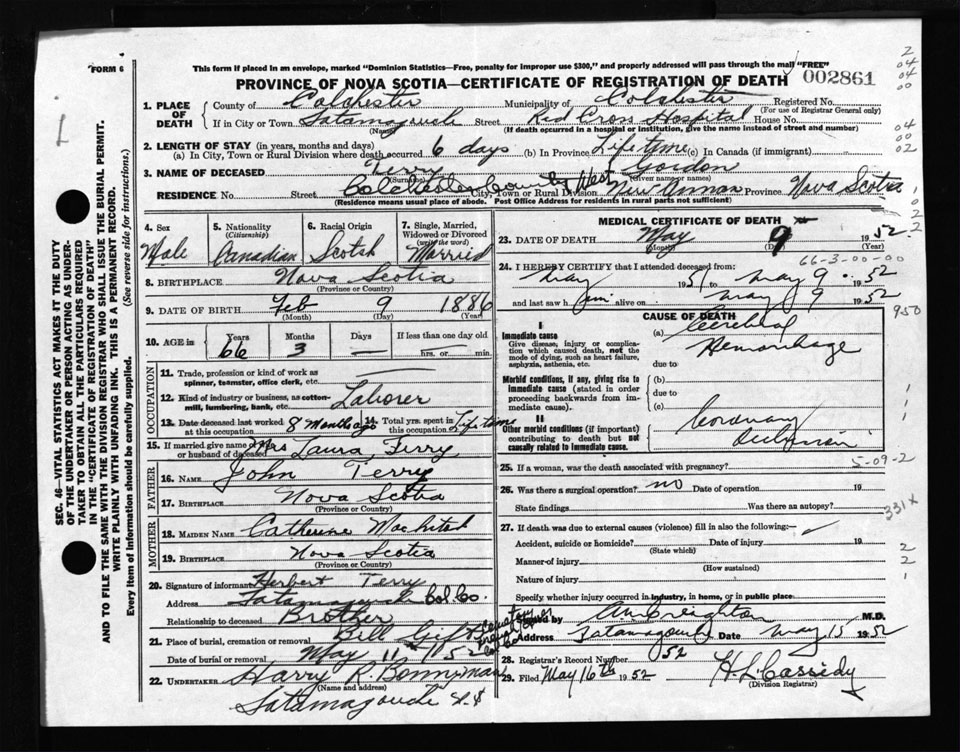 FORM 6
This form if placed in an envelope, marked "Dominion Statistics—Free, penalty for improper use $300," and properly addressed will pass through the mail "FREE"
PROVINCE OF NOVA SCOTIA—CERTIFICATE OF REGISTRATION OF DEATH 002861
1. PLACE OF DEATH
County of Colchester Municipality of Colchester Registered No.
(For use of Registrar General only)
If in City or Town Tatamagouche Street Red Cross Hospital House No.
(Name) (If death occurred in a hospital or institution, give the name instead of street and number)
2. LENGTH OF STAY (in years, months and days)
(a) In City, Town or Rural Division where death occurred 6 days (b) In Province Lifetime (c) In Canada (if immigrant)
3. NAME OF DECEASED Terry Gordon
(Surname) (Given name or names)
RESIDENCE No. Street Colchester County West City, Town or Rural Division New Annan Province Nova Scotia
(Residence means usual place of abode. Post Office Address for residents in rural parts not sufficient)
4. Sex
Male
5. Nationality
(Citizenship)
Canadian
6. Racial Origin
Scotch
7. Single, Married, Widowed or Divorced
(write the word)
Married
8. BIRTHPLACE Nova Scotia
(Province or Country)
9. DATE OF BIRTH Feb 9 1886
(Month) (Day) (Year)
10. AGE in
Years Months Days If less than one day old
66 3 — hrs. or min.
OCCUPATION
11. Trade, profession or kind of work as spinner, teamster, office clerk, etc.
12. Kind of industry or business, as cotton-mill, lumbering, bank, etc. Laborer
13. Date deceased last worked at this occupation 8 Months ago
14. Total yrs. spent in this occupation Lifetime
15. If married give name of wife or husband of deceased Mrs Laura Terry
FATHER
16. NAME John Terry
17. BIRTHPLACE Nova Scotia
(Province or Country)
MOTHER
18. MAIDEN NAME Catherine
19. BIRTHPLACE Nova Scotia
(Province or Country)
20. Signature of informant Herbert Terry
Address Tatamagouche Col. Co.
Relationship to deceased Brother
21. Place of burial, cremation or removal Bell
Date of burial or removal May 11 1952
22. UNDERTAKER Harry R. Bonnyman
(Name and address)
Tatamagouche N.S
MEDICAL CERTIFICATE OF DEATH
23. DATE OF DEATH May 9 1952
(Month) (Day) (Year)
66-3-00-00
24. I HEREBY CERTIFY that I attended deceased from:
May 1951 to May 9 1952
and last saw him alive on May 9 1952
CAUSE OF DEATH
I
Immediate cause
Give disease, injury or complication which caused death, not the mode of dying, such as heart failure, asphyxia, asthenia, etc.
(a) Cerebral
Hemorrhage
due to
Morbid conditions, if any, giving rise to immediate cause (stated in order proceeding backwards from immediate cause).
(b)
due to
(c)
II
Other morbid conditions (if important) contributing to death but not causally related to immediate cause.
Coronary
25. If a woman, was the death associated with pregnancy? 5-09-2
26. Was there a surgical operation? no Date of operation 19
State findings Was there an autopsy?
331X
27. If death was due to external causes (violence) fill in also the following:—
Accident, suicide or homicide? Date of injury 19
(State which)
Manner of injury
(How sustained)
Nature of injury
State if injury occurred in industry, in home, or in public place
Signed by Creighton M.D.
Address Tatamagouche Date May 15 1952
28. Registrar's Record Number 52
29. Filed May 16th 1952 H. L. Cassidy
(Division Registrar)
SEC. 46—VITAL STATISTICS ACT MAKES IT THE DUTY
OF THE UNDERTAKER OR PERSON ACTING AS UNDER-
TAKER TO OBTAIN ALL THE PARTICULARS REQUIRED
IN THE "CERTIFICATE OF REGISTRATION OF DEATH"
AND TO FILE THE SAME WITH THE DIVISION REGISTRAR WHO SHALL ISSUE THE BURIAL PERMIT.
WRITE PLAINLY WITH UNFADING INK. THIS IS A PERMANENT RECORD.
Every item of information should be carefully supplied. (See reverse side for instructions.)
2
04
04
00
04
00
02
950
2
2
1